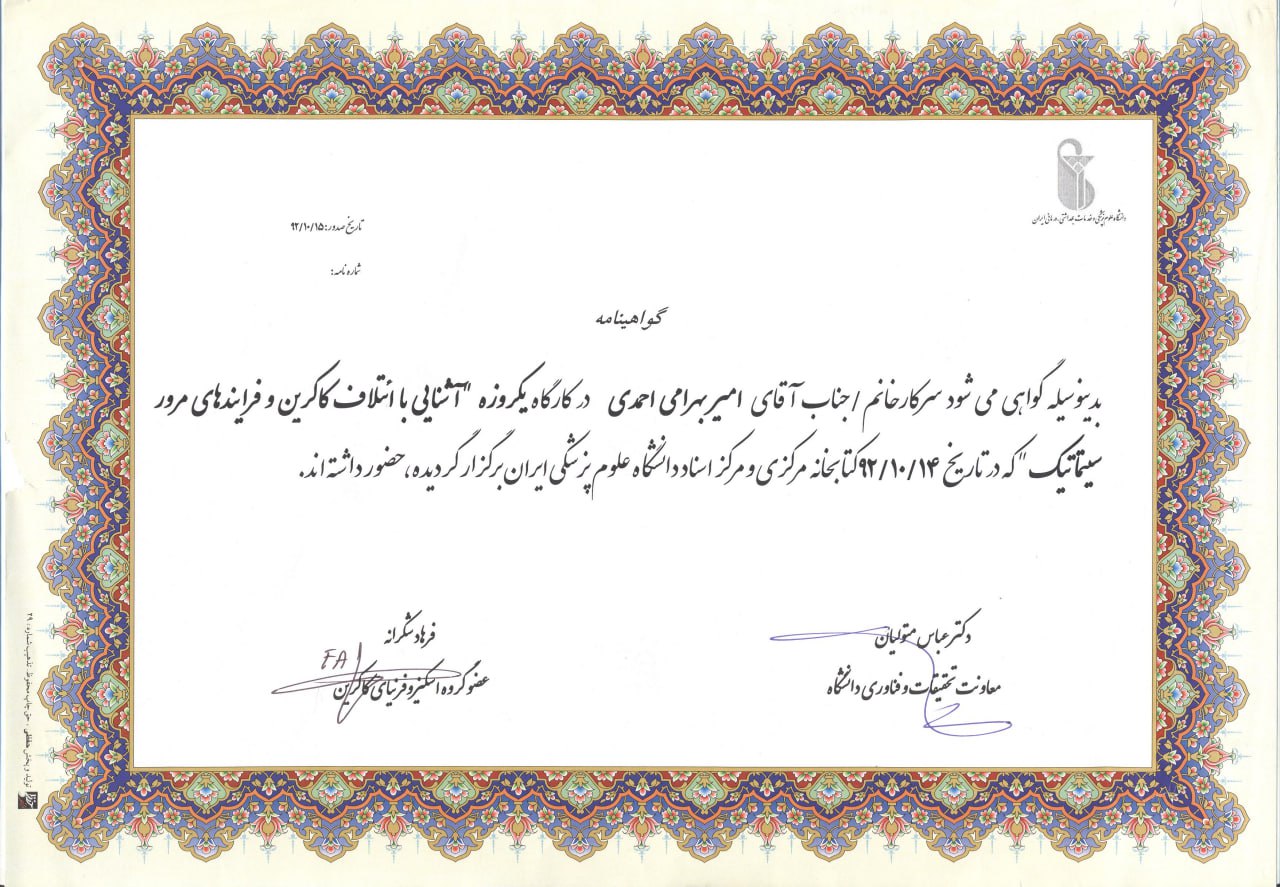 دانشگاه علوم پزشکی و خدمات بهداشتی درمانی ایران
تاریخ صدور: ۹۲/۱۰/۱۵
شماره نامه:
گواهینامه
بدینوسیله گواهی می شود سرکار خانم / جناب آقای امیر بهرامی احمدی در کارگاه یکروزه "آشنایی با ائتلاف کاکرین و فرایندهای مرور
سیتماتیک" که در تاریخ ۹۲/۱۰/۱۴ کتابخانه مرکزی و مرکز اسناد دانشگاه علوم پزشکی ایران برگزار گردیده، حضور داشته اند.
دکتر عباس متولیان
معاونت تحقیقات و فناوری دانشگاه
فرهاد شکرانه
FA
عضو گروه اسکیزوفرنیای کاکرین
تولید و پخش حقانی . حق چاپ محفوظ تذهیب شماره: ۲۹